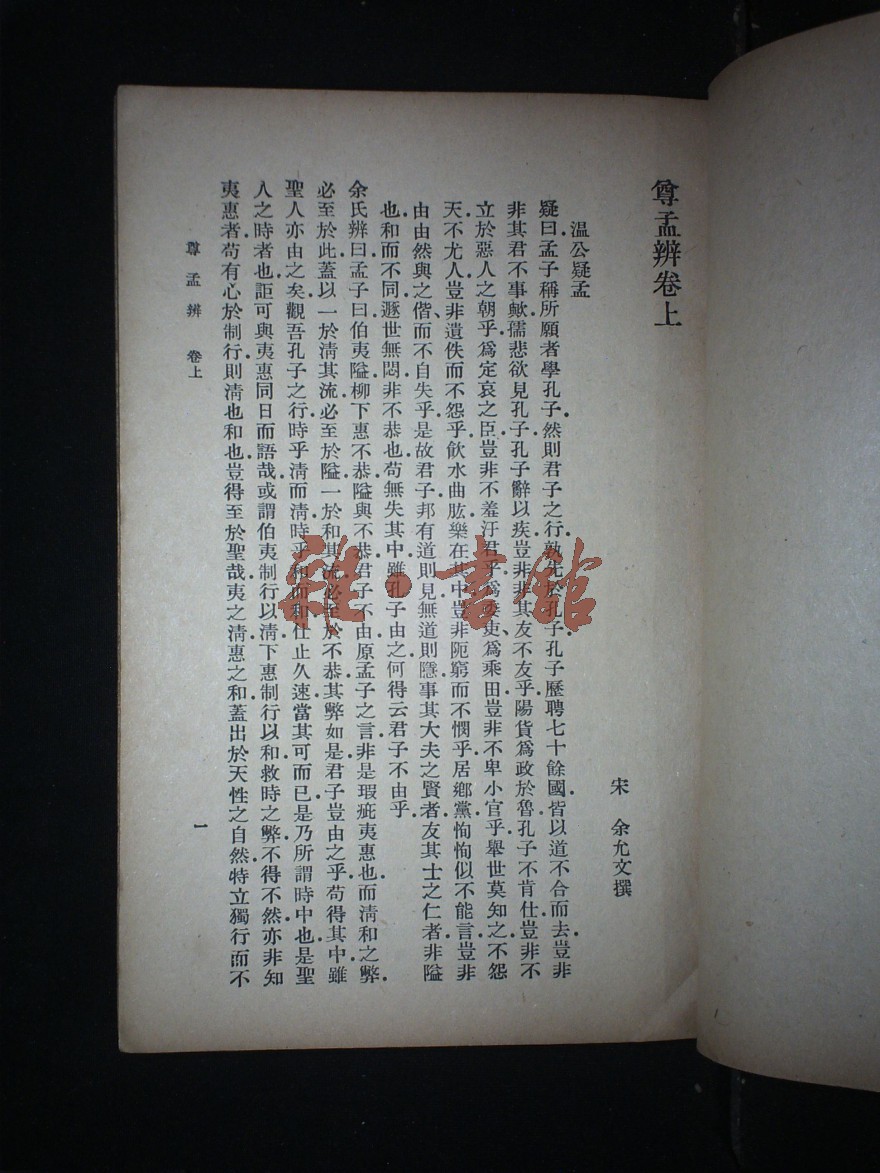 尊孟辨卷上
宋　余允文撰
温公疑孟
疑曰孟子稱所願者學孔子然則君子之行孰先於孔子孔子歷聘七十餘國皆以道不合而去豈非
非其君不事歟孺悲欲見孔子孔子辭以疾豈非非其友不友乎陽貨爲政於魯孔子不肯仕豈非不
立於惡人之朝乎爲定哀之臣豈非不羞汙君乎爲委吏爲乘田豈非不卑小官乎舉世莫知之不怨
天不尤人豈非遺佚而不怨乎飲水曲肱樂在其中豈非阨窮而不憫乎居鄉黨恂恂似不能言豈非
由由然與之偕而不自失乎是故君子邦有道則見無道則隱事其大夫之賢者友其士之仁者非隘
也和而不同遯世無悶非不恭也苟無失其中雖孔子由之何得云君子不由乎
余氏辨曰孟子曰伯夷隘柳下惠不恭隘與不恭君子不由原孟子之言非是瑕疵夷惠也而清和之弊
必至於此蓋以一於清其流必至於隘一於和其流必至於不恭其弊如是君子豈由之乎苟得其中雖
聖人亦由之矣觀吾孔子之行時乎清而清時乎和而和仕止久速當其可而已是乃所謂時中也是聖
人之時者也詎可與夷惠同日而語哉或謂伯夷制行以清下惠制行以和救時之弊不得不然亦非知
夷惠者苟有心於制行則清也和也豈得至於聖哉夷之清惠之和蓋出於天性之自然特立獨行而不
尊孟辨　卷上
一
雜·書館